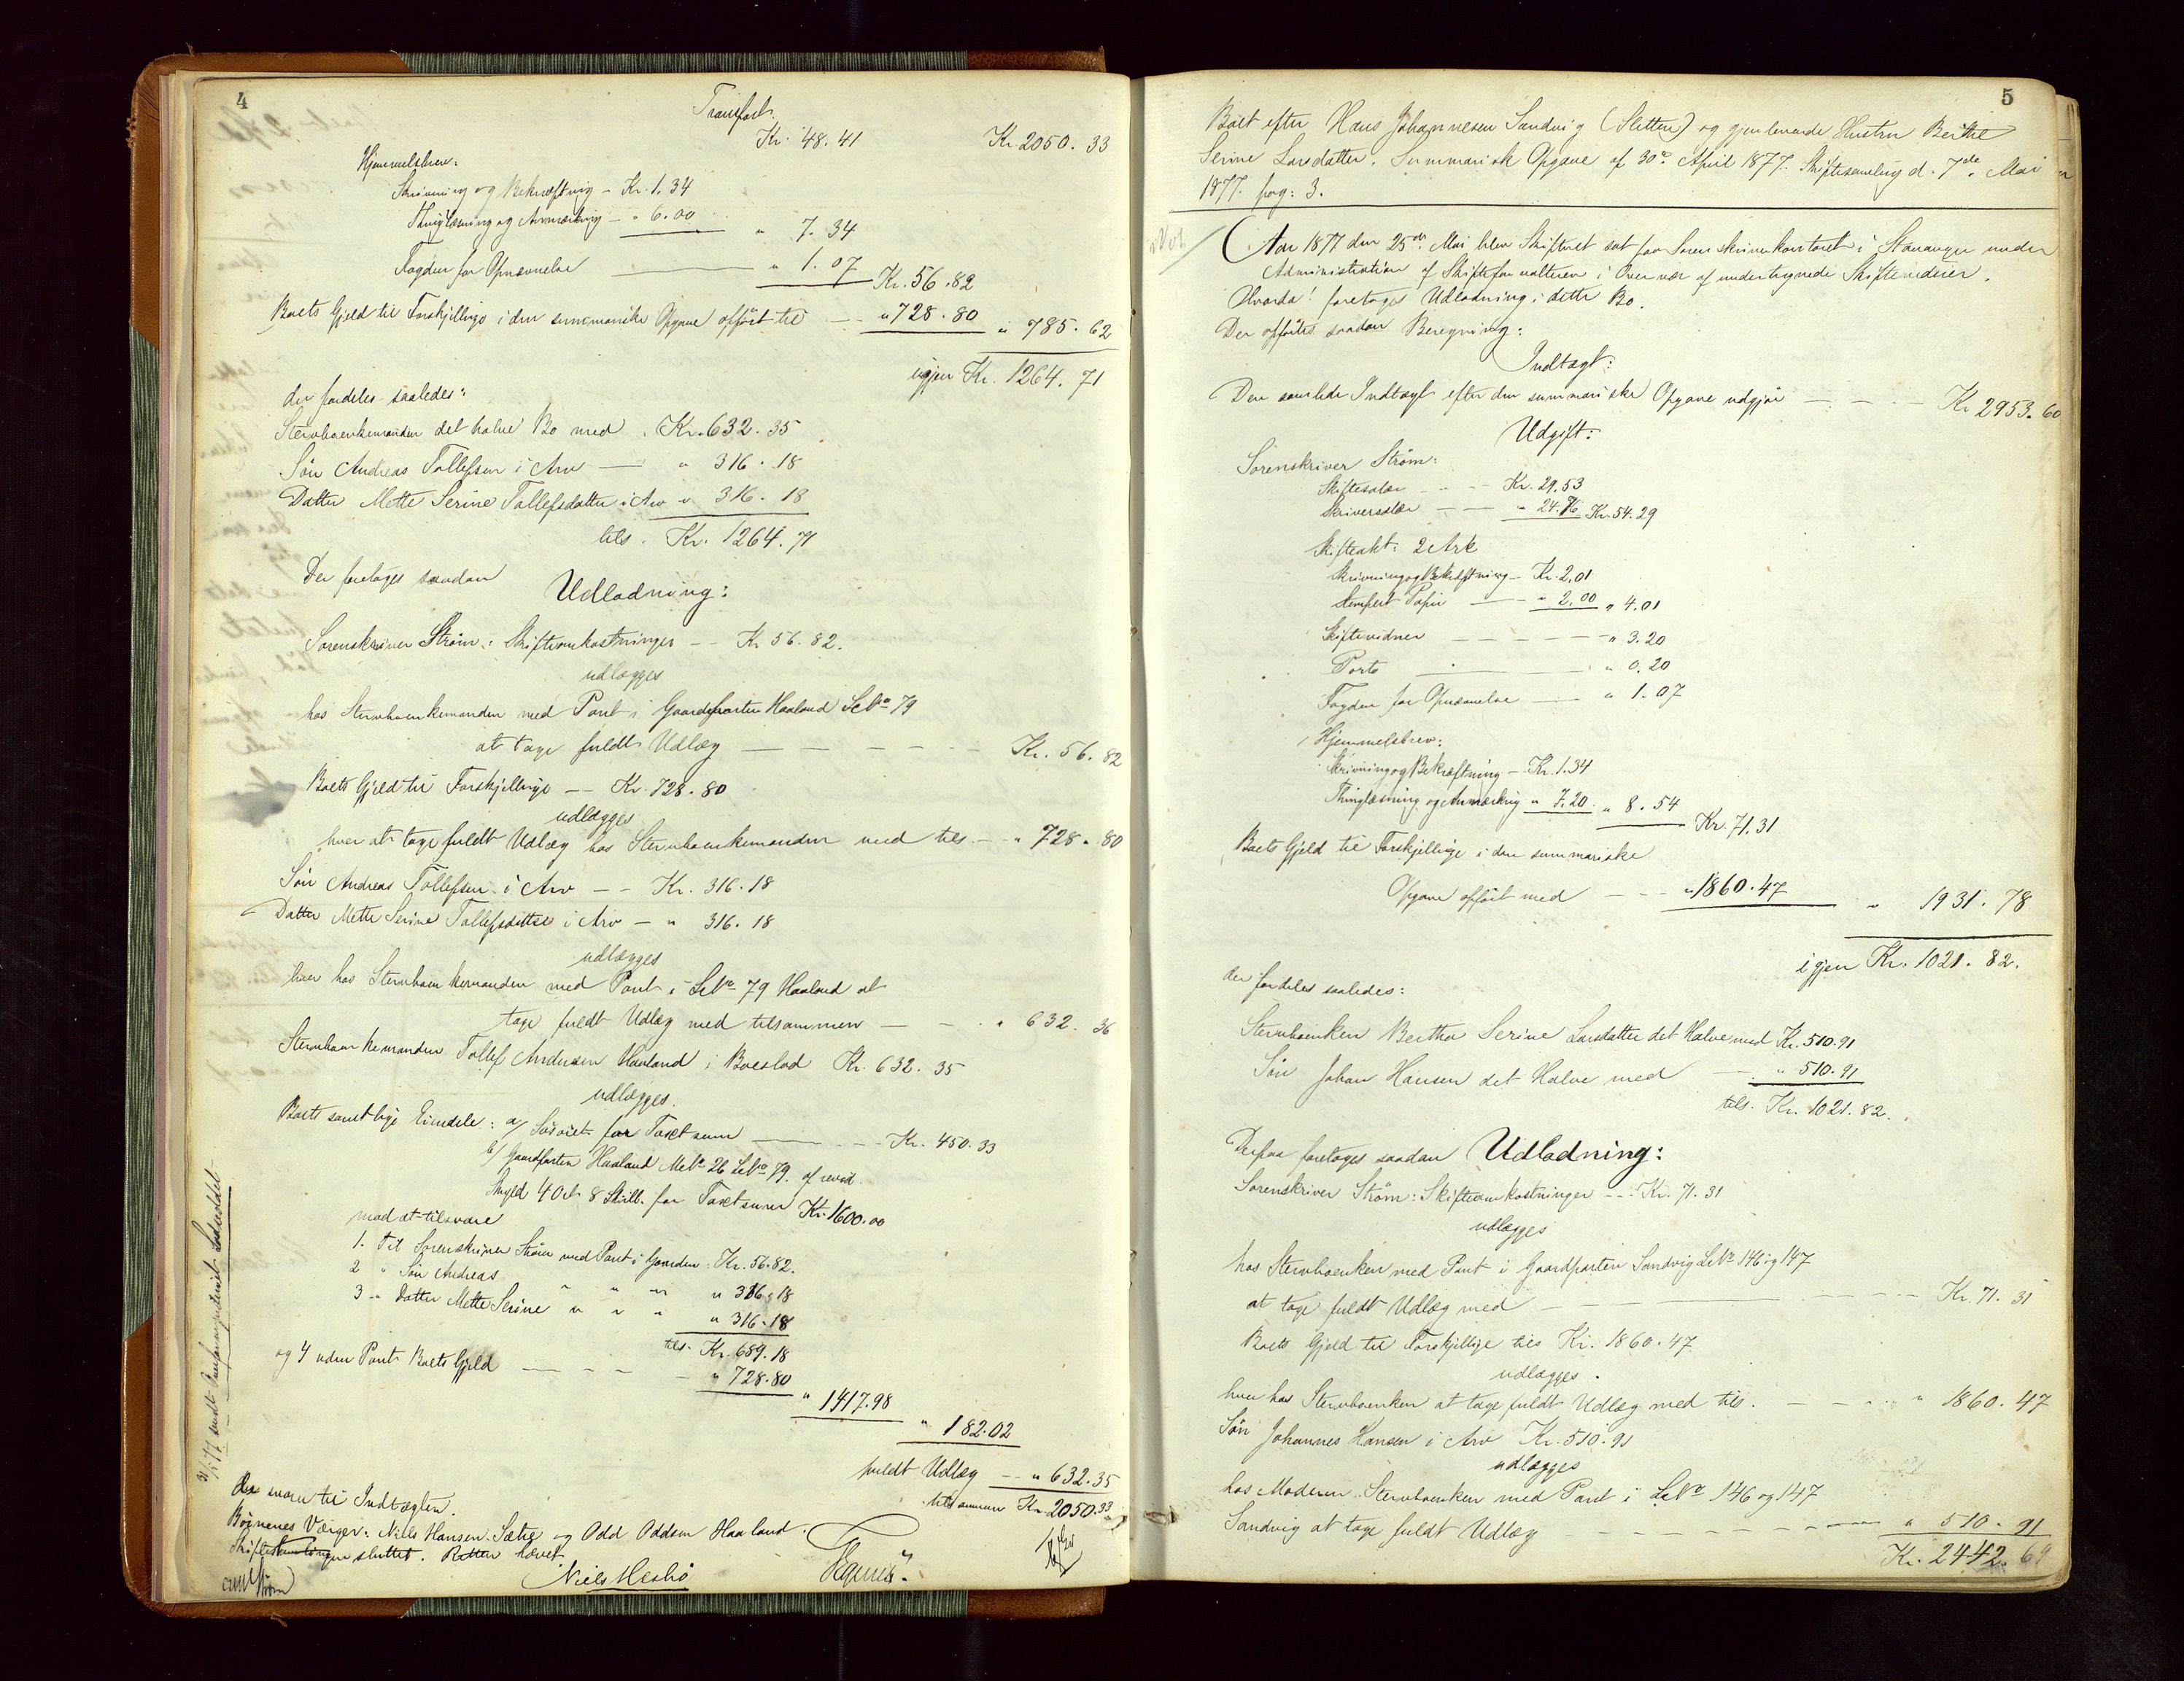 4
Transport.
Kr. 48. 41 Kr. 2050. 33
Hjemmelsbrev:
Skrivning og Bekræftning - Kr. 1,34
Thinglæsning og Anmærkning - " 6.00 " 7. 34
Fogden for Opnævnelse " 1. 07 Kr. 56. 82
Boets Gjeld til Forskjellige i den summariske Opgave opført til " 728. 80 " 785. 62
igjen Kr. 1264. 71
der fordeles saaledes:
Stervboenkemanden det halve Bo med . Kr. 632. 35
Søn Andreas Tollefsen i Arv — " 316. 18
Datter Mette Serine Tollefsdatter i Arv " 316. 18
tils. Kr. 1264. 71
Der foretages saadan Udlodning:
Sorenskriver Strøm: Skifteomkostninger -- Kr 56. 82.
udlægges
hos Stervboenkemanden med Pant i Gaardparten Haaland LNo 79
at tage fuldt Udlæg — — — — Kr. 56. 82
Boets Gjeld til Forskjellige -- Kr. 728. 80
udlægges
hver at tage fuldt Udlæg hos Stervboenkemanden med tils. - " 728. 80
Søn Andreas Tollefsen i Arv -- Kr. 316. 18
Datter Mette Serine Tollefsdatter i Arv - " 316. 18
udlægges
hver hos Stervboenkemanden med Pant i LNo 79 Haaland at
tage fuldt Udlæg med tilsammen — - . " 632. 36
Stervboenkemanden Tollef Andersen Haaland i Boeslod Kr. 632. 35
udlægges.
Boets samtlige Eiendele: a/ Løsøret for Taxtsum — - - - Kr. 450. 33
b/ Gaardparten Haaland MNo 26 LNo 79. af revid.
Skyld 4 Ort 8 Skill. for Taxtsum Kr. 1600.00
mod at tilsvare
1. til Sorenskriver Strøm med Pant i Gaarden: Kr. 56.82.
2 " Søn Andreas " " " " 316.18
3 " Datter Mette Serine " " " " 316.18
tils. Kr. 689.18
og 4 uden Pant Boets Gjeld — — — " 728.80
" 1417.98
" 182.02
fuldt Udlæg -- " 632.35
tilsammen Kr. 2050.33
der svarer til Indtægten.
Børnenes Værger: Niels Hansen Sætre og Odd Oddsen Haaland.
Skiftesamlingen sluttet. Retten hævet
Strøm Niels Hesbø
5
Boet efter Hans Johannesen Sandvig (Sletten) og gjenlevende Hustru Berthe
Serine Larsdatter. Summarisk Opgave af 30te April 1877. Skiftesamling d. 7de Mai
1877. pag: 3.
Aar 1877 den 25de Mai blev Skifteret sat paa Sorenskriverkontoret i Stavanger under
Administration af Skifteforvalteren i Overvær af undertegnede Skiftevidner.
Hvorda! foretoges Udlodning i dette Bo.
Der opførtes saadan Beregning:
Indtægt:
Den samlede Indtægt efter den summariske Opgave udgjør — - — - Kr 2953. 60
Udgift:
Sorenskriver Strøm:
Skiftesalær - - - Kr. 29.53
Skriversalær - — " 24.76 Kr. 54.29
Skifteakt: 2 Ark
Skrivning og Bekræftning - Kr. 2,01
stemplet Papir — - " 2.00 " 4.01
Skiftevidner - - - - - " 3.20
Porto — " 0.20
Fogden for Opnævnelse — " 1.07
Hjemmelsbrev:
Skrivning og Bekræftning - Kr. 1.34
Thinglæsning og Anmærkning " 7.20 " 8. 54 Kr. 71.31
Boets Gjeld til Forskjellige i den summariske
Opgave opført med - - - " 1860.47 " 1931. 78
igjen Kr. 1021. 82.
der fordeles saaledes:
Stervboenken Berthe Serine Larsdatter det Halve med Kr. 510.91
Søn Johan Hansen det Halve med — " 510.91
tils. Kr. 1021.82.
Derpaa foretoges saadan Udlodning:
Sorenskriver Strøm: Skifteomkostninger --- Kr. 71.31
udlægges
hos Stervboenken med Pant i Gaardparten Sandvig LNo 146 og 147
at tage fuldt Udlæg med — - - - Kr. 71. 31
Boets Gjeld til Forskjellige tils Kr. 1860.47
udlægges.
hver hos Stervboenken at tage fuldt Udlæg med tils. — - " 1860. 47
Søn Johannes Hansen i Arv Kr. 510.91
udlægges
hos Moderen Stervboenken med Pant i LNo 146 og 147
Sandvig at tage fuldt Udlæg - - - - " 510. 91
Kr. 2442. 69